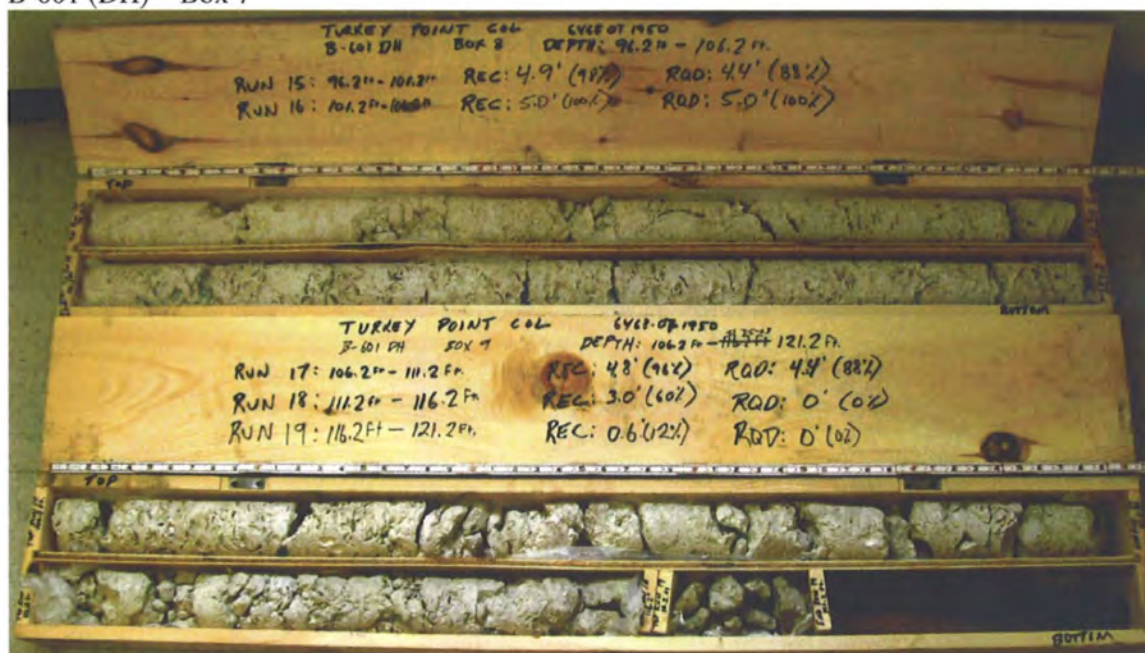 B-601 (DH) – Box 7
TURKEY POINT COL 6468-07-1950
B-601 DH BOX 8 DEPTH: 96.2 ft - 106.2 Ft.
RUN 15: 96.2 ft - 101.2 ft REC: 4.9' (98%) RQD: 4.4' (88%)
RUN 16: 101.2 ft - 106.2 ft REC: 5.0' (100%) RQD: 5.0' (100%)
TOP
BOTTOM
TURKEY POINT COL 6468-07-1950
B-601 DH BOX 9 DEPTH: 106.2 Ft - 121.2 Ft.
RUN 17: 106.2 Ft - 111.2 Ft. REC: 4.8' (96%) RQD: 4.4' (88%)
RUN 18: 111.2 Ft - 116.2 Ft. REC: 3.0' (60%) RQD: 0' (0%)
RUN 19: 116.2 Ft - 121.2 Ft. REC: 0.6' (12%) RQD: 0' (0%)
TOP
BOTTOM